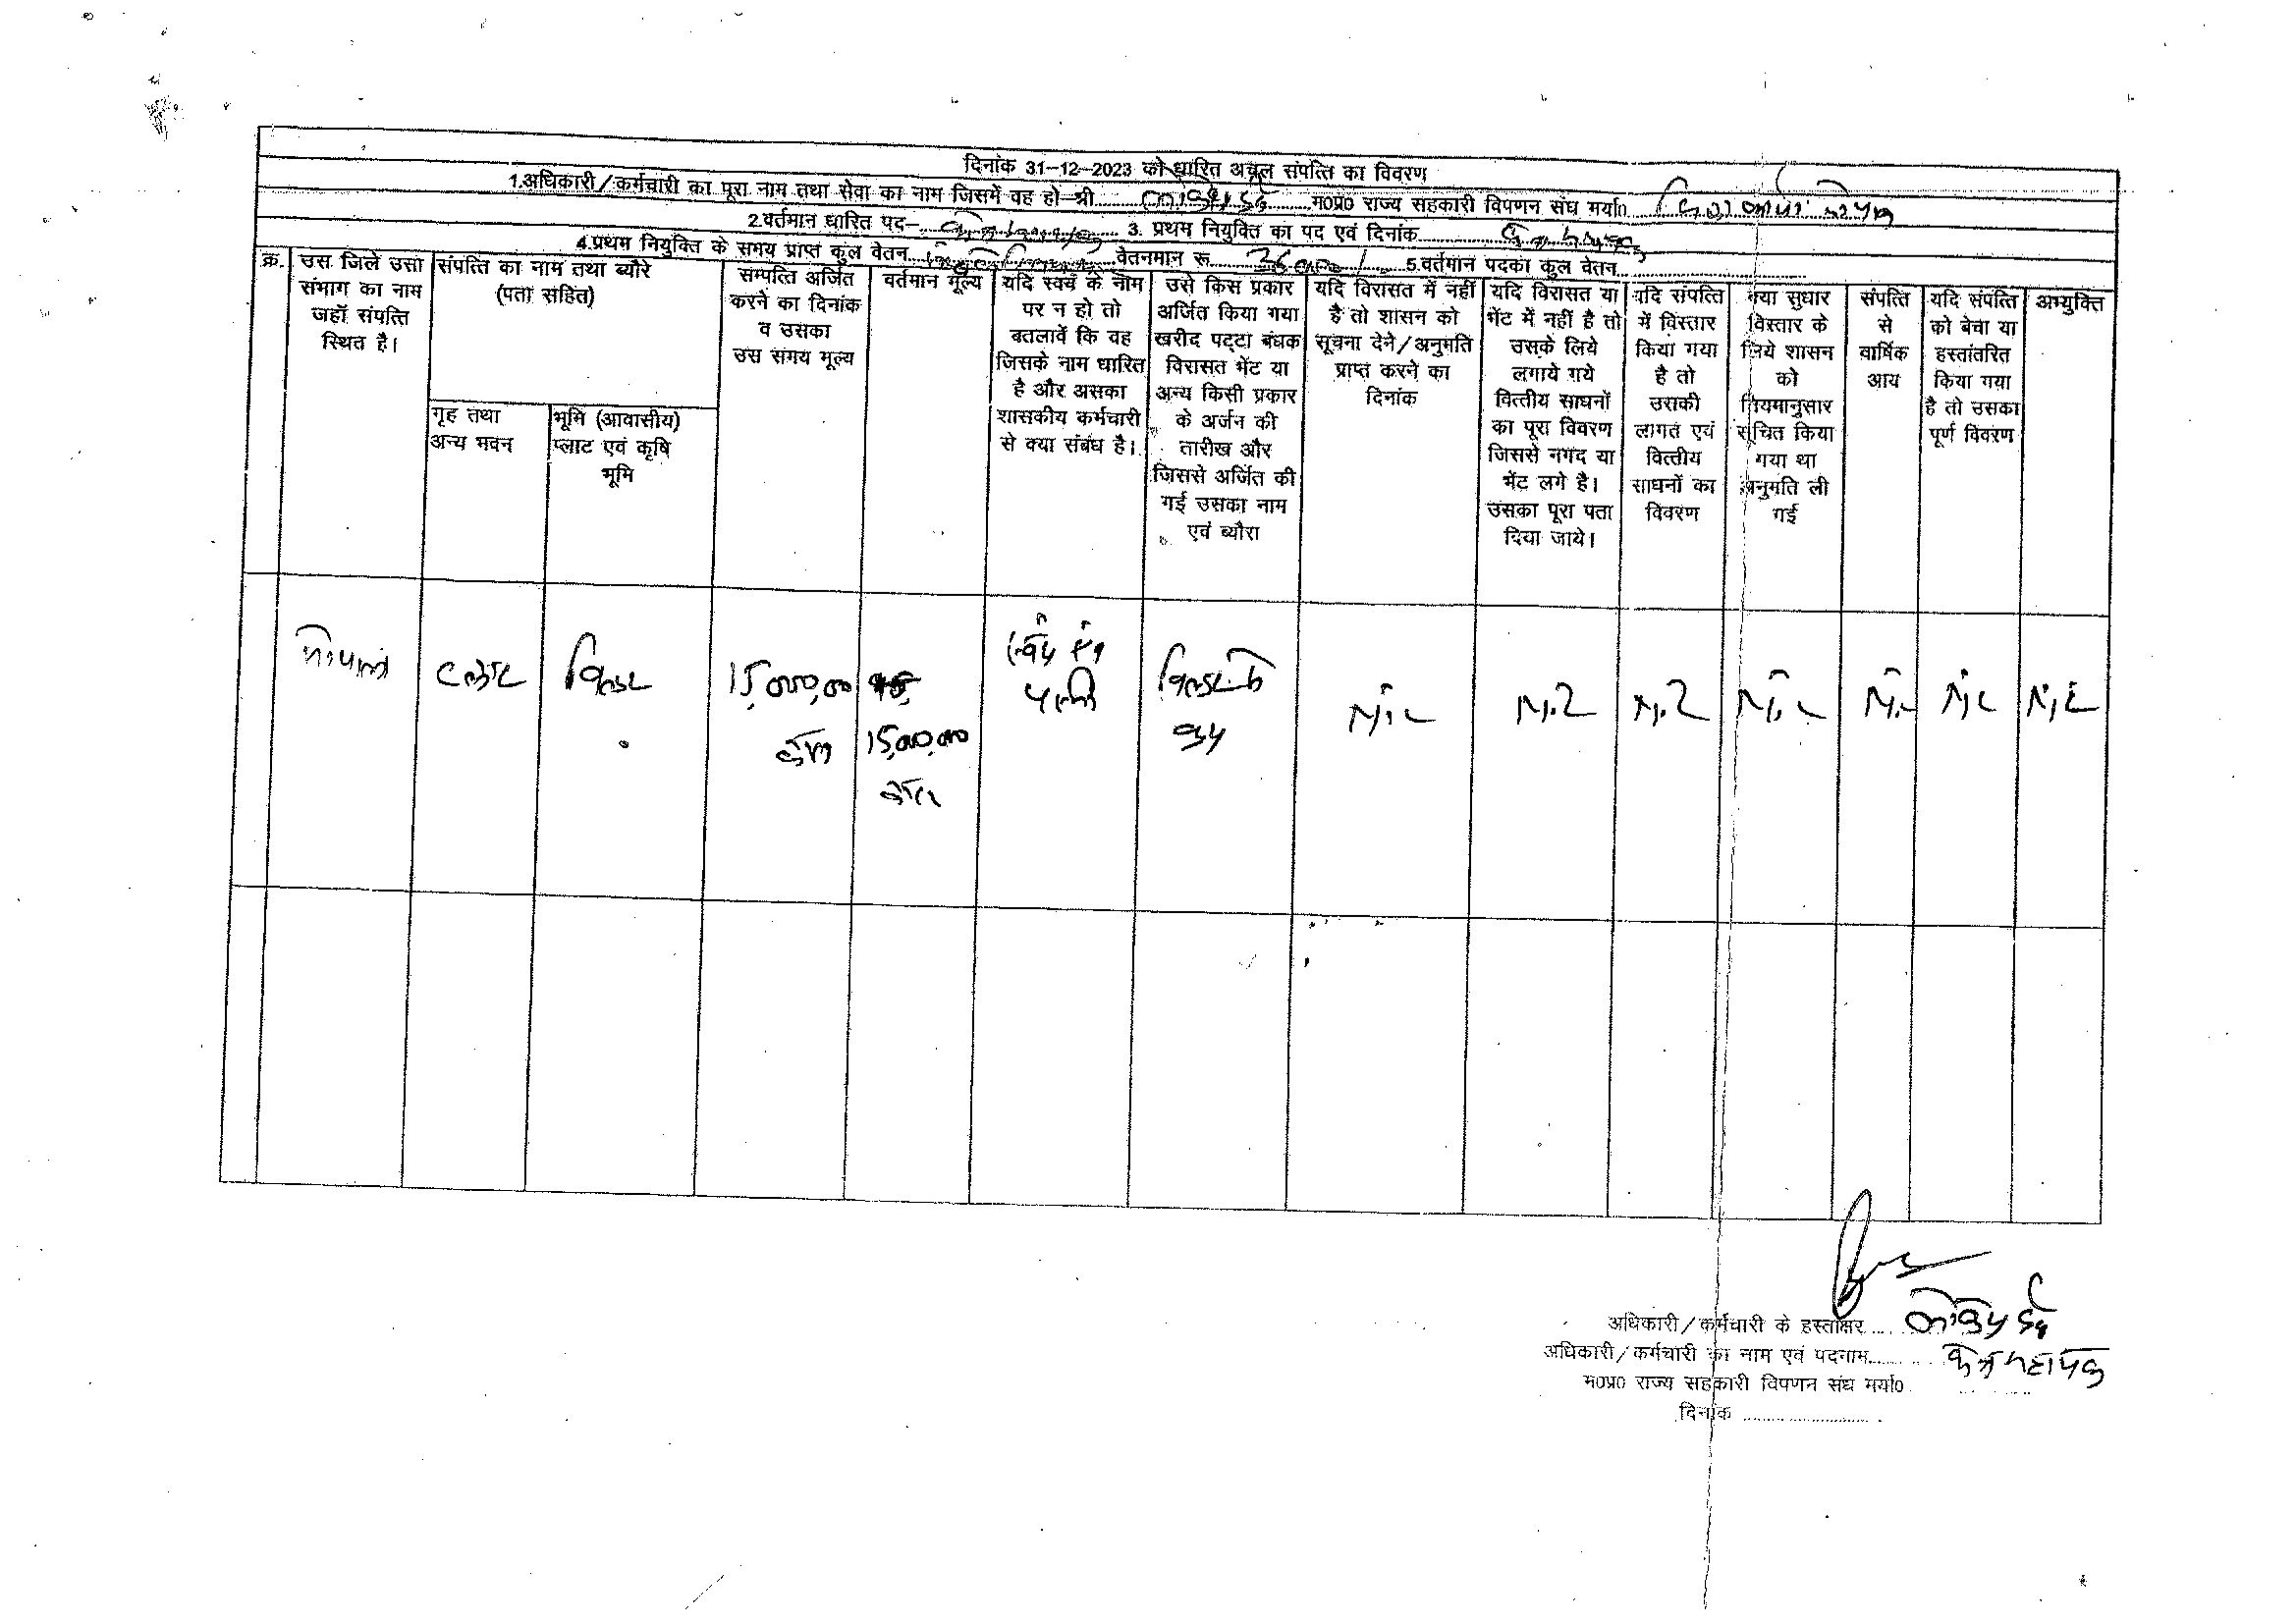 दिनांक 31-12-2023 को धारित अचल संपत्ति का विवरण
1.अधिकारी/कर्मचारी का पूरा नाम तथा सेवा का नाम जिसमें वह हो-श्री म0प्र0 राज्य सहकारी विपणन संघ मर्या0
2.वर्तमान धारित पद- 3. प्रथम नियुक्ति का पद एवं दिनांक
4.प्रथम नियुक्ति के समय प्राप्त कुल वेतन वेतनमान रू. 5.वर्तमान पदका कुल वेतन
क्र.
उस जिले उसा
संभाग का नाम
जहॉ संपत्ति
स्थित है।
संपत्ति का नाम तथा ब्यौरे
(पता सहित)
गृह तथा
अन्य भवन
भूमि (आवासीय)
प्लाट एवं कृषि
भूमि
सम्पत्ति अर्जित
करने का दिनांक
व उसका
उस समय मूल्य
वर्तमान मूल्य
यदि स्वयं के नाम
पर न हो तो
बतलावें कि वह
जिसके नाम धारित
है और असका
शासकीय कर्मचारी
से क्या संबंध है।
उसे किस प्रकार
अर्जित किया गया
खरीद पट्टा बंधक
विरासत भेंट या
अन्य किसी प्रकार
के अर्जन की
तारीख और
जिससे अर्जित की
गई उसका नाम
एवं ब्यौरा
यदि विरासत में नहीं
है तो शासन को
सूचना देने/अनुमति
प्राप्त करने का
दिनांक
यदि विरासत या
भेंट में नहीं है तो
उसके लिये
लगाये गये
वित्तीय साधनों
का पूरा विवरण
जिससे नगद या
भेंट लगे है।
उसका पूरा पता
दिया जाये।
यदि संपत्ति
में विस्तार
किया गया
है तो
उसकी
लागत एवं
वित्तीय
साधनों का
विवरण
क्या सुधार
विस्तार के
लिये शासन
को
नियमानुसार
सूचित किया
गया था
अनुमति ली
गई
संपत्ति
से
वार्षिक
आय
यदि संपत्ति
को बेचा या
हस्तांतरित
किया गया
है तो उसका
पूर्ण विवरण
अभ्युक्ति
भोपाल
15,000,00
15,00,000
पत्नी
क्रय
Nil
Nil
Nil
Nil
Nil
Nil
Nil
अधिकारी/कर्मचारी के हस्ताक्षर
अधिकारी/कर्मचारी का नाम एवं पदनाम
म0प्र0 राज्य सहकारी विपणन संघ मर्या0
दिनांक